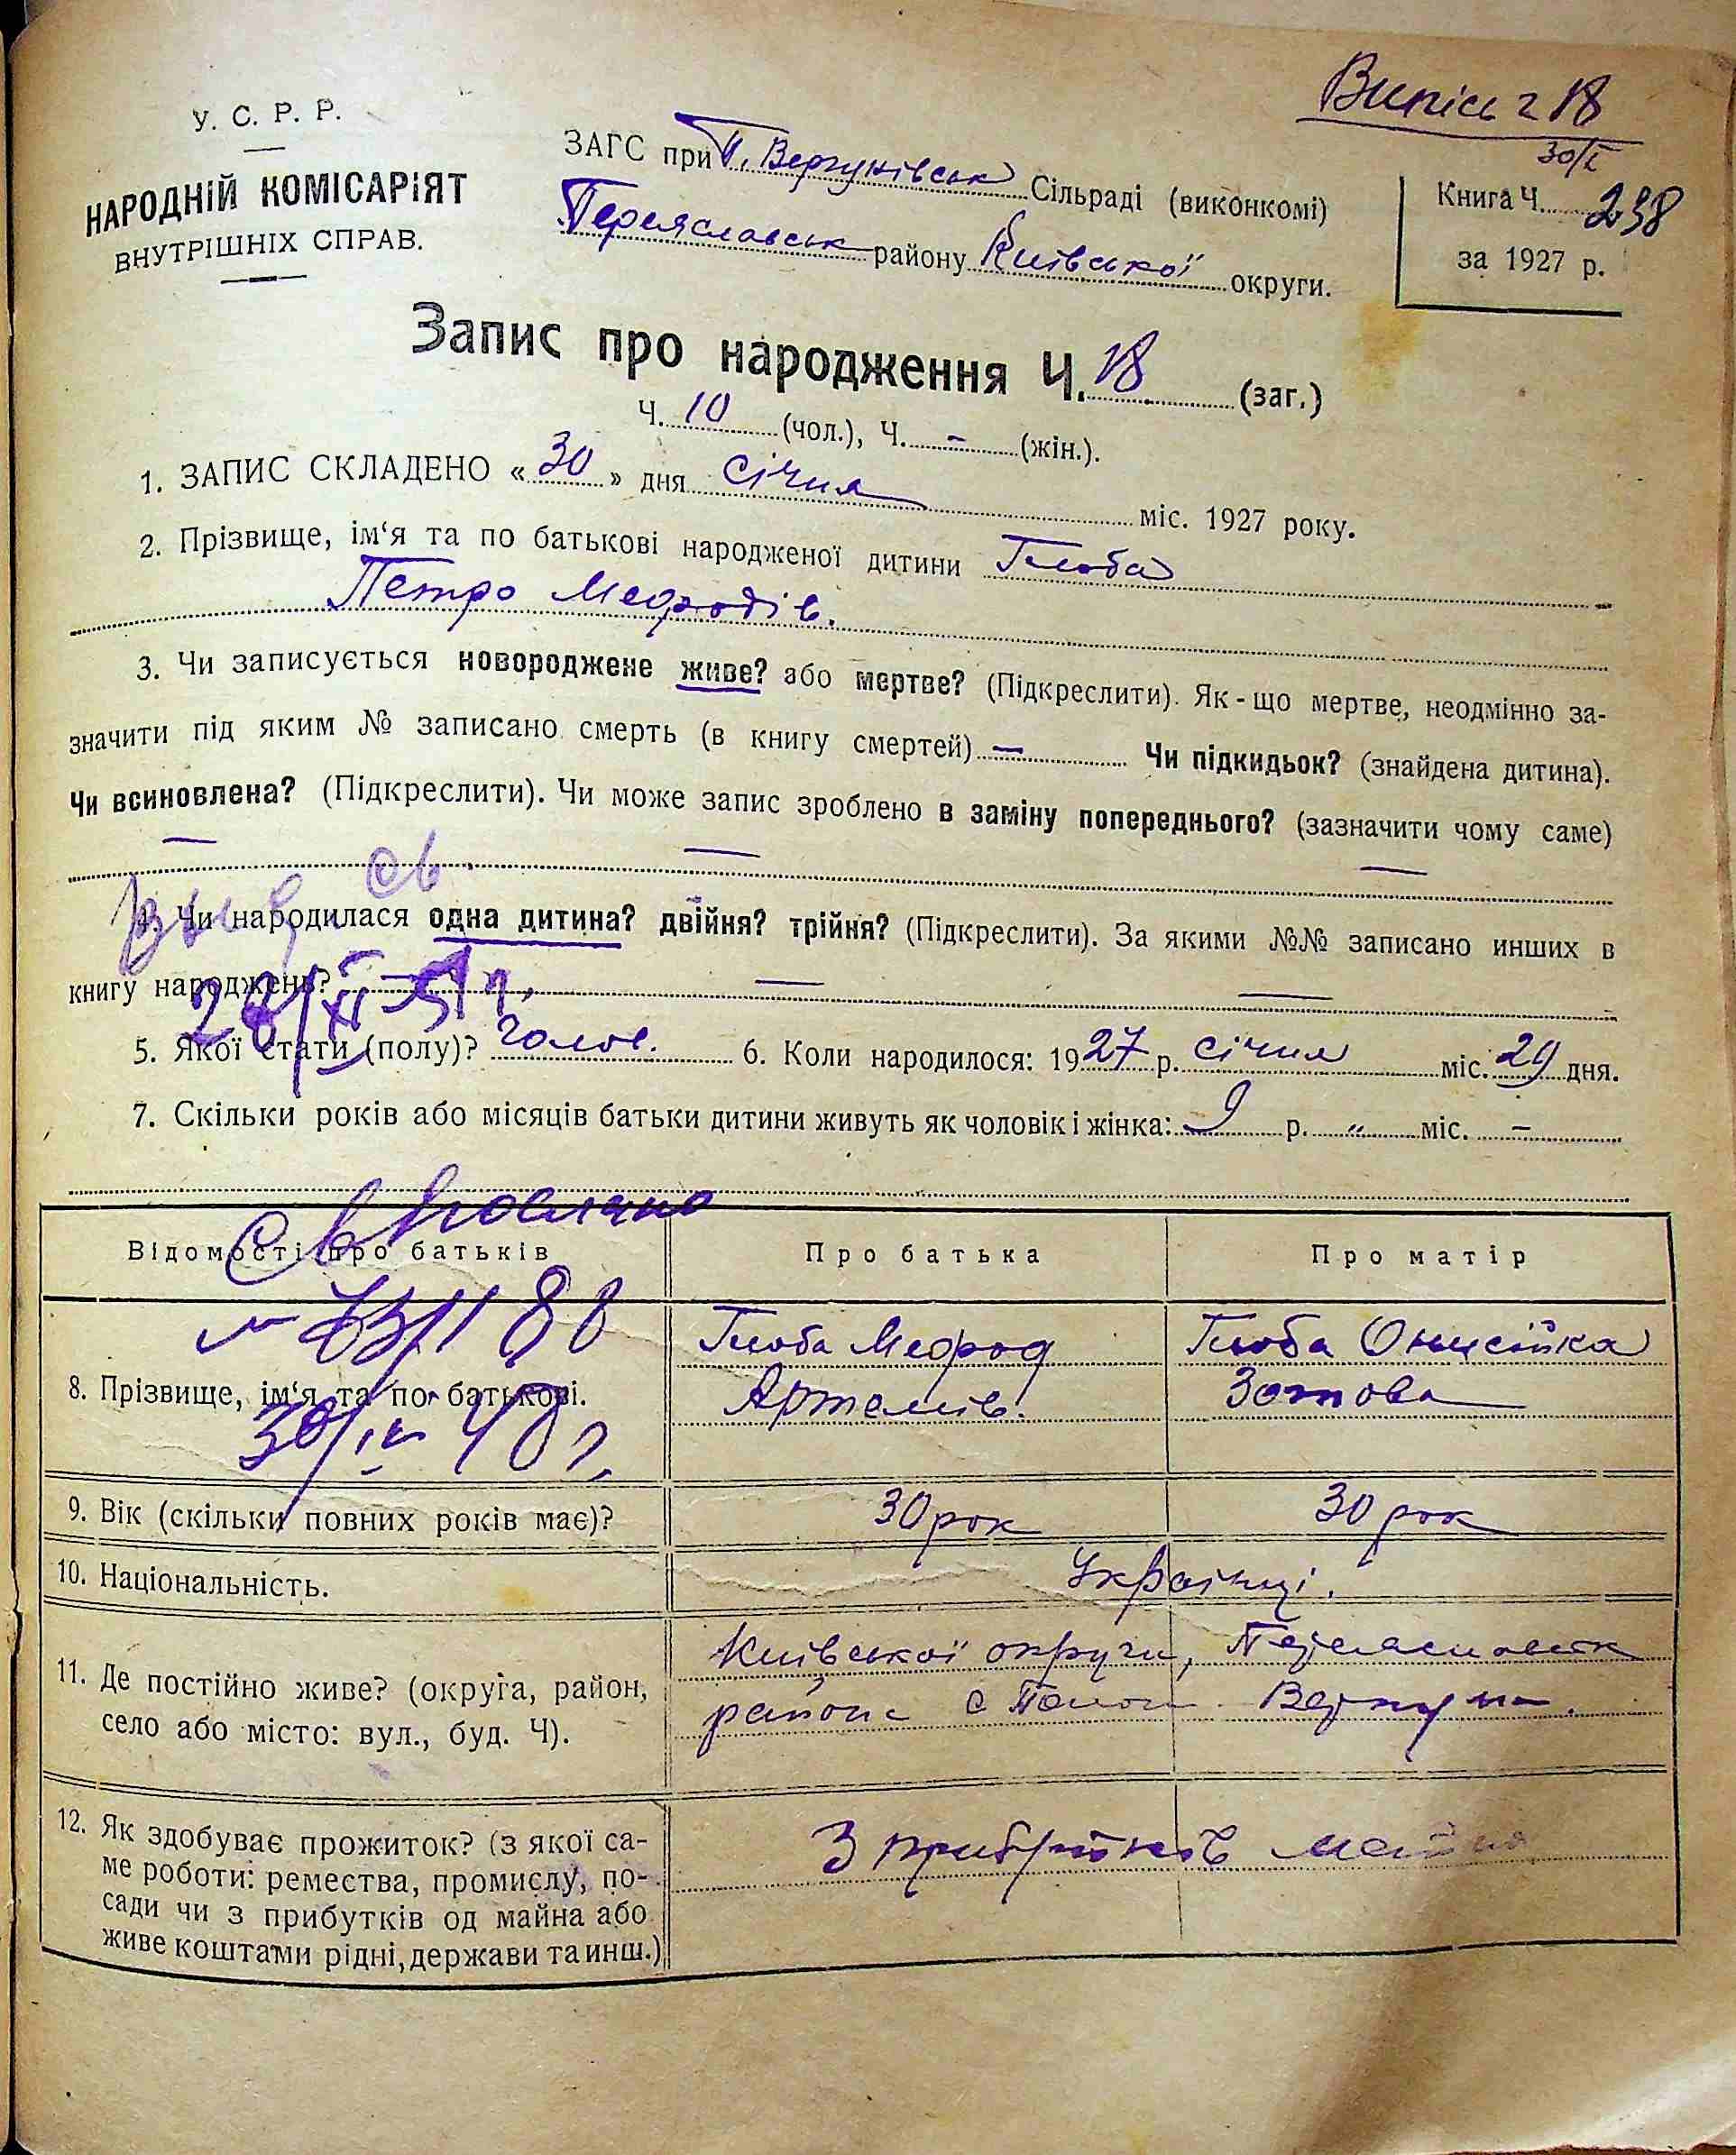 Випісь 2 18
30/I
У. С. Р. Р.
НАРОДНІЙ КОМІСАРІЯТ
ВНУТРІШНІХ СПРАВ.
ЗАГС при П. Вергунівськ Сільраді (виконкомі)
Переяславськ району Київської округи.
Книга Ч. 238
за 1927 р.
Запис про народження Ч. 18 (заг.)
Ч. 10 (чол.), Ч. - (жін.).
1. ЗАПИС СКЛАДЕНО «30» дня січня міс. 1927 року.
2. Прізвище, ім‘я та по батькові народженої дитини Глоба
Петро Мефодів.
3. Чи записується новороджене живе? або мертве? (Підкреслити). Як-що мертве, неодмінно за-
значити під яким № записано смерть (в книгу смертей) — Чи підкидьок? (знайдена дитина).
Чи всиновлена? (Підкреслити). Чи може запис зроблено в заміну попереднього? (зазначити чому саме)
св.
4. Чи народилася одна дитина? двійня? трійня? (Підкреслити). За якими №№ записано инших в
книгу народжень?
28/XI-51 г.
5. Якої стати (полу)? чолов. 6. Коли народилося: 1927 р. січня міс. 29 дня.
7. Скільки років або місяців батьки дитини живуть як чоловік і жінка: 9 р. „ міс. -
Св.
Відомості про батьків Про батька Про матір
30/IV 40 г.
8. Прізвище, ім‘я та по батькові. Глоба Мефод Артемів. Глоба Онисійка Зотова
9. Вік (скільки повних років має)? 30 рок 30 рок
10. Національність. Українці.
11. Де постійно живе? (округа, район,
село або місто: вул., буд. Ч).
Київської округи, Переяславськ
района с Полог Вергун.
12. Як здобуває прожиток? (з якої са-
ме роботи: ремества, промислу, по-
сади чи з прибутків од майна або
живе коштами рідні, держави та инш.)
З прибутків майна